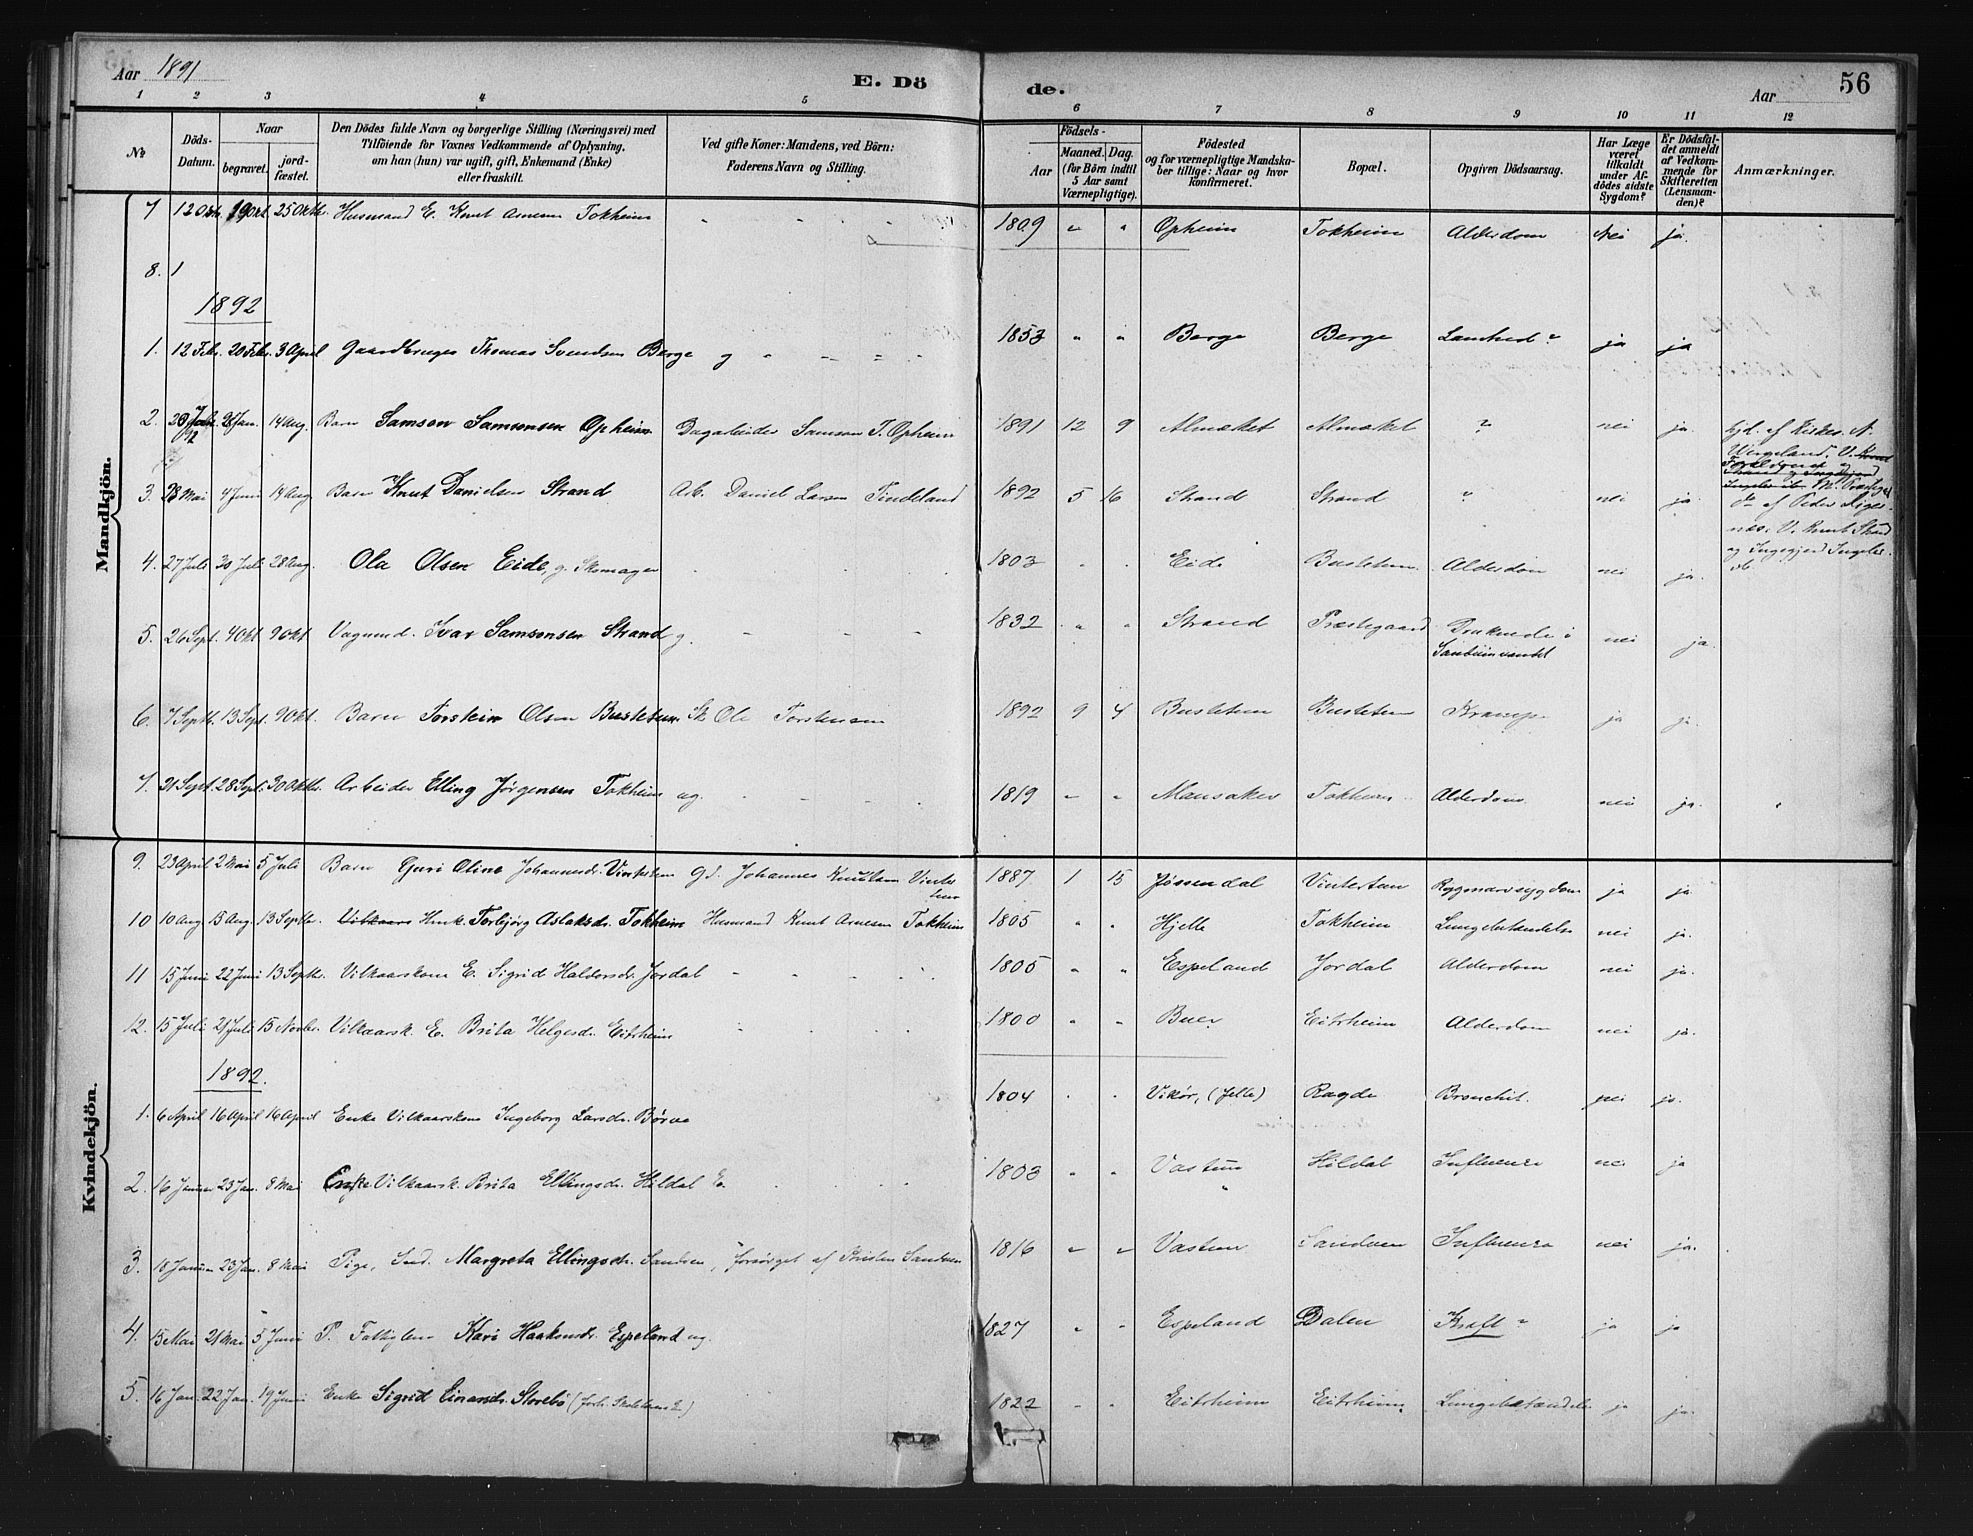 Aar 1891 E. Dö de. Aar 56
1 2 3 4 5 6 7 8 9 10 11 12
№ Döds-Datum. Naar begravet. jord-fæstet. Den Dödes fulde Navn og borgerlige Stilling (Næringsvei) med Tilföiende for Voxnes Vedkommende af Oplysning, om han (hun) var ugift, gift, Enkemand (Enke) eller fraskilt. Ved gifte Koner: Mandens, ved Börn: Faderens Navn og Stilling. Födsels- Aar Maaned. Dag. (for Börn indtil 5 Aar samt Værnepligtige). Födested og for værnepligtige Mandska-ber tillige: Naar og hvor konfirmeret. Bopæl. Opgiven Dödsaarsag. Har Læge været tilkaldt under Af-dödes sidste Sygdom? Er Dödsfal-det anmeldt af Vedkom-mende for Skifteretten (Lensman-den)? Anmærkninger.
Mandkjön.
7 12 Okt. 19 Okt. 25 Oktb. Husmand E. Knut Arnesen Tokheim 1809 " " Opheim Tokheim Alderdom Nei ja.
8. 1
1892
1. 12 Febr. 20 Febr. 3 April Gaardbruger Thomas Svendsen Berge g 1853 " " Berge Berge ja ja
2. 26 Jan. 14 Aug. Barn Samson Samsonsen Opheim Dagarbeider Samson T. Opheim 1891 12 9 Almæket Almæket ? nei ja.
3. 28 Mai 4 Juni 14 Aug Barn Knut Danielsen Strand Arb. Daniel Larsen Tindeland 1892 5 16 Strand Strand " nei ja
4. 27 Juli 30 Juli 28 Aug. Ola Olsen Eide, g. Skomager 1803 Eide Busteten Alderdom nei ja.
5. 26 Sept. 4 Okt 9 Okt. Ivar Samsonsen Strand g. 1832 " " Strand Præstegaard Druknede i Sandvinvandet nei ja.
6. 7 Septb. 13 Sept. 9 Okt. Barn Torstein Olsen Busteten Sk Ole Torstensen 1892 9 4 Busteten Busteten Krampe ja ja.
7. 21 Sept. 28 Sept. 30 Oktbr. Arbeider Elling Jørgensen Tokheim ug. 1819 " " Mansaker Tokheim Alderdom nei ja.
Kvindekjön.
9. 23 April 2 Mai 5 Juli Barn Guri Oline Johannesdr. Vintertun Gd. Johannes Knutsen Vintertun 1887 1 15 Jøssendal Vintertun Rygmarvssygdom ja ja.
10 10 Aug. 13 Aug. 13 Septb. Torbjørg Aslaksdr. Tokheim Husmand Knut Arnesen Tokheim 1805 " " Hjelle Tokheim Lungebetændelse nei ja.
11 15 Juni 22 Juni 13 Septb. Vilkaarskone E. Sigrid Haldorsdr. Jordal 1805 " " Espeland Jordal Alderdom nei ja.
12. 15 Juli 21 Juli 15 Novbr. Vilkaarsk. E. Brita Helgesdr. Eitrheim 1800 " " Buer Eitrheim Alderdom nei ja.
1892.
1. 6 April 16 April 16 April Enke Vilkaarskone Ingeborg Larsdr. Børve 1804 Vikør, (Jelle) Ragde Bronchit. nei ja.
2. 16 Januar 23 Jan. 8 Mai Enke Vilkaarsk. Brita Ellingsdr. Hildal E. 1803 " " Vastun Hildal Influenza nei ja
3. 18 Januar 23 Jan. 8 Mai Pige, Ind. Margreta Ellingsdr. Sandven, forsørget af Sandven 1816 " " Vastun Sandven Influenza nei ja.
4. 15 Mai 21 Mai 5 Juni P. Fattiglem Kari Haakonsdr. Espeland ug. 1827 " " Espeland Dalen Kræft ? ja ja
5. 16 Jan. 22 Jan. 19 Juni Enke Sigrid Einarsdr. Storebø 1822 " " Eitrheim Eitrheim. Lungebetændelse ja ja.